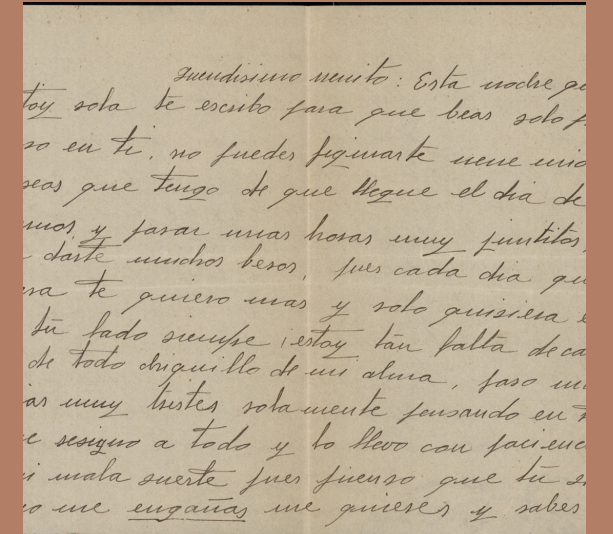 Queridisimo nenito: Esta noche qu
toy sola te escribo para que beas solo p
so en ti, no puedes figurarte nene mio
seas que tengo de que llegue el dia de
rnos y pasar unas horas muy juntitos,
darte muchos besos, pues cada dia qu
asa te quiero mas y solo quisiera e
tú lado siempre ¡estoy tan falta de ca
de todo chiquillo de mi alma, paso un
ias muy tristes solamente pensando en t
e resigno a todo y lo llevo con pacienc
i mala suerte pues pienso que tú si
no me engañas me quieres y sabes